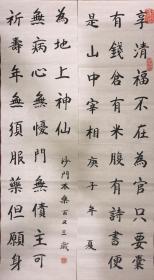 享清福不在為官只要囊
有錢倉有米腹有詩書便
是山中宰相 庚子年夏
祈壽年無須服藥但願身
無病心無憂門無債主可
為地上神仙 沙門本樂百又三歲